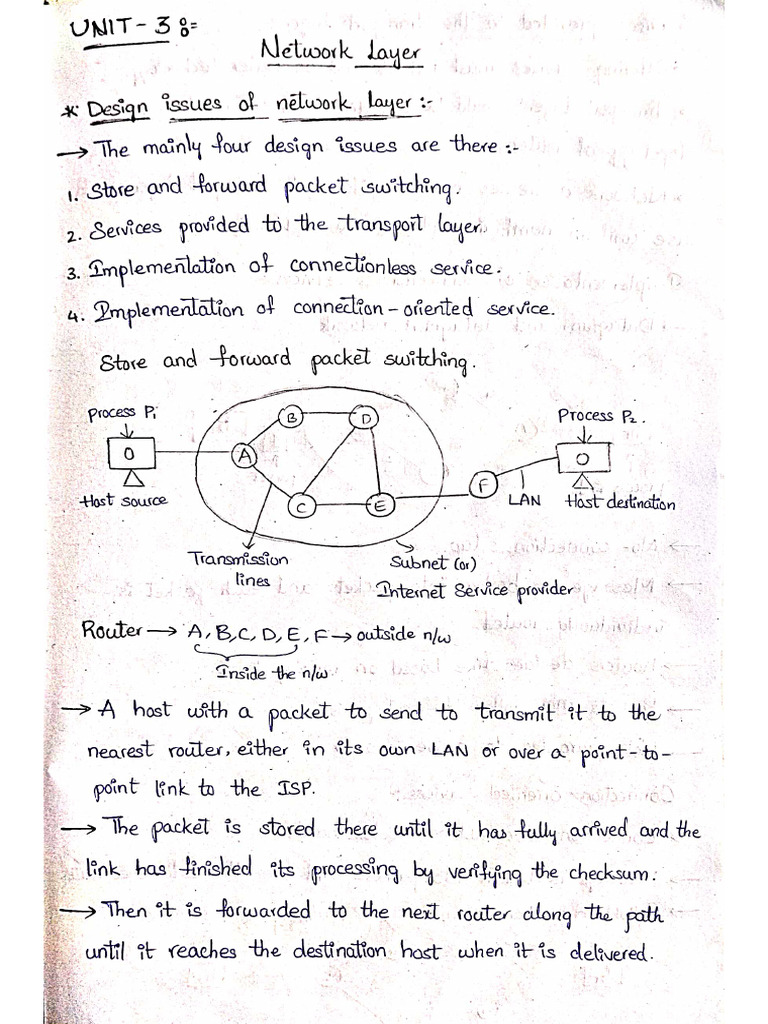 UNIT-3 :-
Network Layer
*: Design issues of network layer :-
→ The mainly four design issues are there :-
1. Store and forward packet switching.
2. Services provided to the transport layer.
3. Implementation of connectionless service.
4. Implementation of connection-oriented service.
Store and forward packet switching.
Process P1
Process P2.
B
D
A
O
O
F
C
E
LAN
Host source
Host destination
Transmission
lines
Subnet (or)
Internet Service provider
Router → A, B, C, D, E, F → outside n/w
Inside the n/w
→ A host with a packet to send to transmit it to the
nearest router, either in its own LAN or over a point-to-
point link to the ISP.
→ The packet is stored there until it has fully arrived and the
link has finished its processing by verifying the checksum.
→ Then it is forwarded to the next router along the path
until it reaches the destination host when it is delivered.